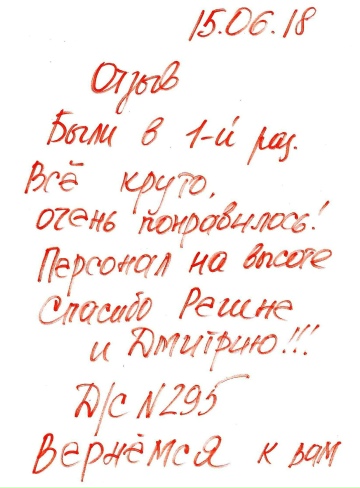 15.06.18
Отзыв
Были в 1-й раз.
Всё круто,
очень понравилось!
Персонал на высоте
Спасибо Регине
и Дмитрию!!!
Д/с N295
Вернёмся к вам